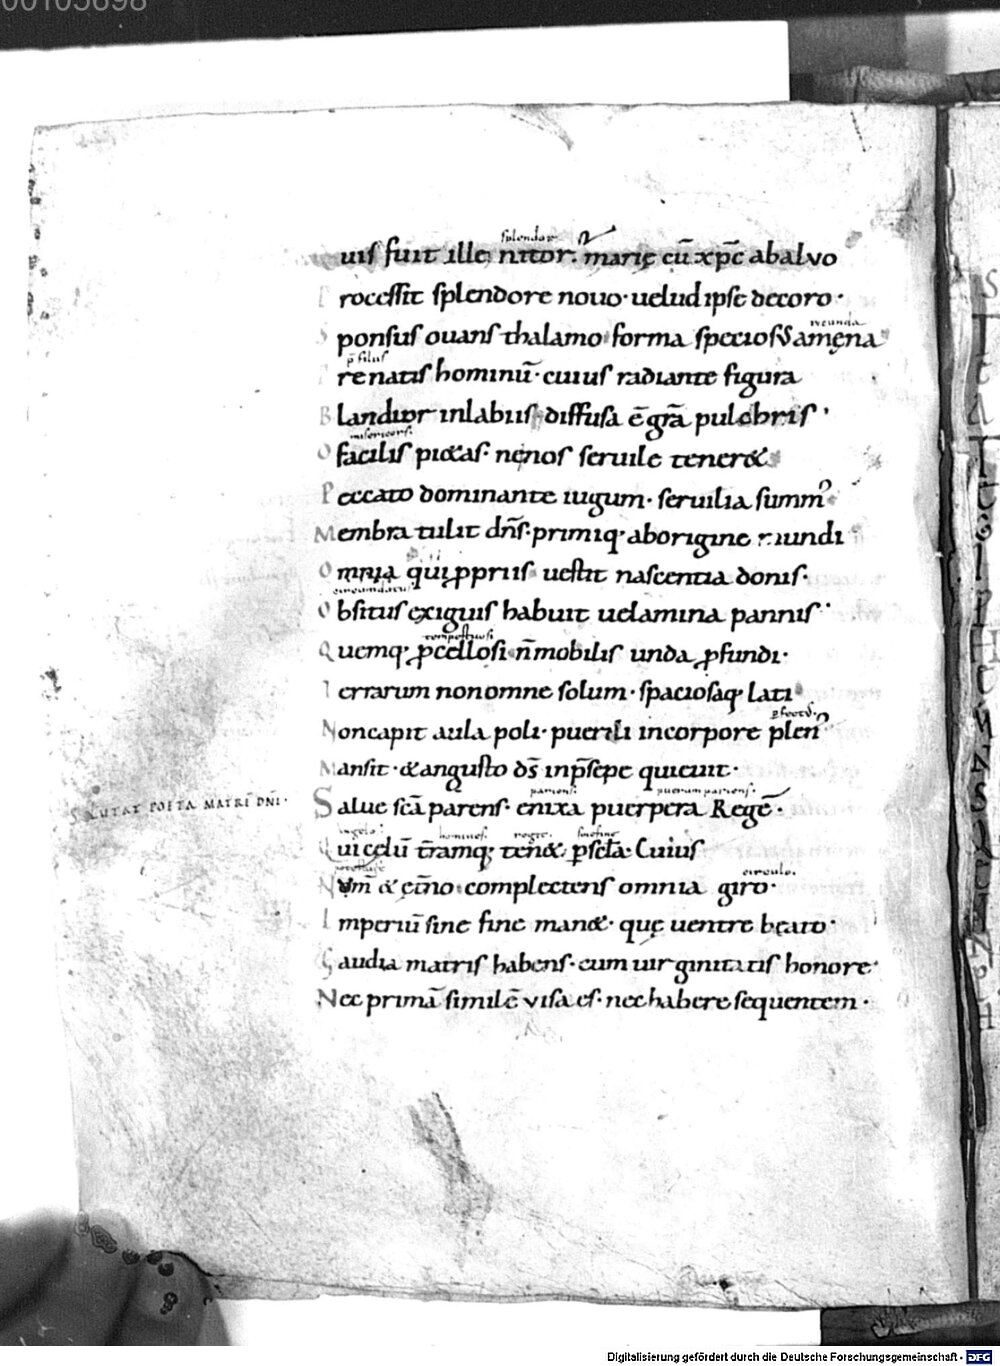 00105698
splendor
uis fuit ille nitor. marię cū xp̄c abalvo
Processit splendore nouo· uelud ipse decoro·
iucunda
Sponsus ouans thalamo· forma speciosus amęna
p filius
renatis hominū· cuius radiante figura
Blandior inlabiis diffusa ē gr̄a pulchris·
misericors.
O facilis pi&as· nęnos seruile tener&
Peccato dominante iugum· seruilia summ᷒
Membra tulit dn̄s· primiq· aborigine mundi
Omnia qui ꝓpriis uestit nascentia donis·
circumdatus
Obsitus exiguis habuit uelamina pannis·
tempestuosi
Quemq· ꝓcellosi n̄ mobilis unda ꝓfundi·
Terrarum nonomne solum· spaciosaq· lati
Noncapit aula poli· puerili incorpore plen᷒
Mansit· &angusto ds̄ inp̄sepe quieuit·
pariens. puerum pariens.
SALUTAT POETA MATRĒ DNĪ· Salue sc̄a parens· enixa puerpera Regē·
Angelos· homines. regit. sine fine
Qui cęlū t̄ramq· ten& p sc̄la· Cuius
circulo.
Num̄ & ęt̄no complectens omnia giro·
Imperiū sine fine man&· quę uentre beato·
Gaudia matris habens· cum uirginitatis honore·
Nec primā similē visa es· nec habere sequentem·
Digitalisierung gefördert durch die Deutsche Forschungsgemeinschaft - DFG